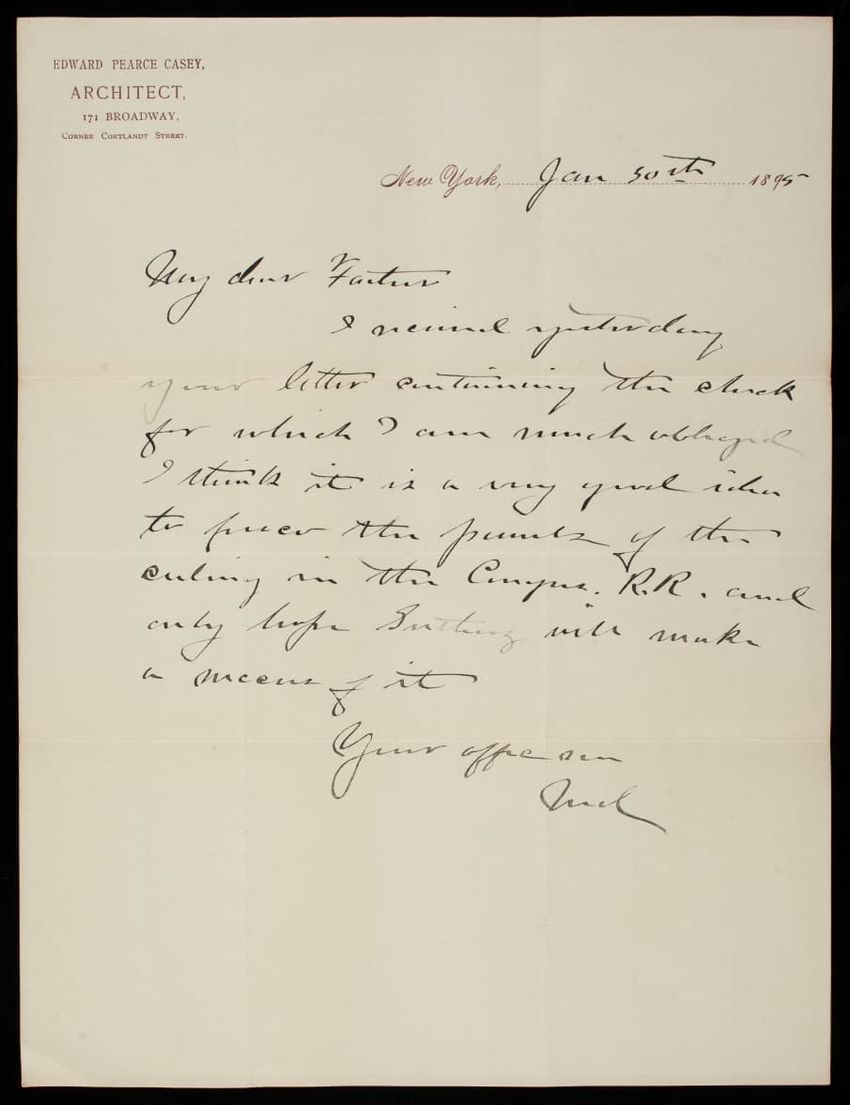 EDWARD PEARCE CASEY,
ARCHITECT,
171 BROADWAY,
CORNER CORTLANDT STREET.
New York, Jan 30th 1895
My dear Father
I received yesterday
your letter containing the check
for which I am much obliged
I think it is a very good idea
to the panels of the
ceiling in the Congres. R.R. and
only hope will make
a success of it
Your affec son
Ned